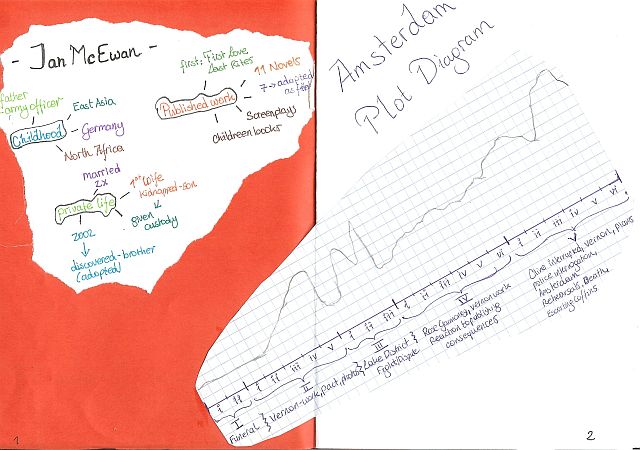 - Ian McEwan -
father
army officer
East Asia
Childhood
Germany
North Africa
first: First Love
Last Rites
11 Novels
7 → adopted
as film
Published work
Screenplays
Childreen books
married
2x
1st Wife
kidnapped-son
private life
given
custody
2002
discovered-brother
(adopted)
1
Amsterdam
Plot Diagram
i ii i ii iii iv v i ii iii i ii iii iv v vi i ii iii iv v vi
I II III IV V
Funeral
Vernon-work, pact, photos
Lake District
Fight/Dispute
Rose Garmony, Vernon work
Reaction to publishing
consequences
Clive interrupted, Vernon, plans
police interrogation,
Amsterdam,
Rehearsals, Death,
Escorting coffins
2